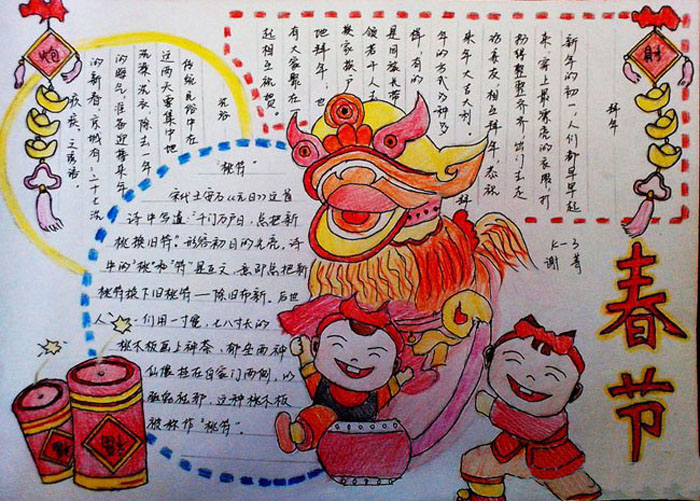 春节
射
炮
拜年
新年的初一，人们都早早起
来，穿上最漂亮的衣服，打
扮得整整齐齐，出门去走
访亲友，相互拜年，恭祝
来年大吉大利。拜
年的方式多种多
样，有的
是同族长带
领若干人
挨家挨户
地拜年；也
有大家聚在
起相互祝贺。
K-3
谢菁
传统民俗中在
这两天要集中地
洗澡、洗衣，除去一年
的晦气，准备迎接来年
的新春，京城有"二十七洗
疚疾"之谚语。
"桃符"
宋代王安石《元日》这首
诗中写道："千门万户日，总把新
桃换旧符。"形容初日的光亮，诗
中的"桃"和"符"是互文，意即总把新
桃符换下旧桃符——除旧布新。后世
人们用一寸宽，七八寸长的
桃木板画上神荼、郁垒两神
仙像挂在自家门两侧，以
驱宅祛邪，这种桃木板
被称作"桃符"。